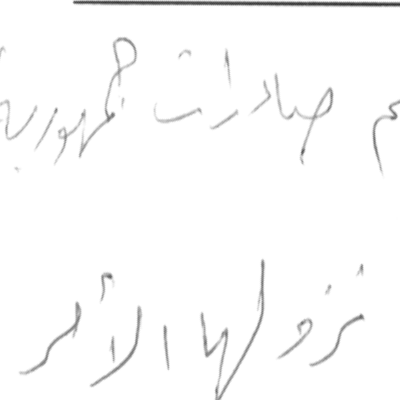 صادرات جمهورية
نزولها الأثر